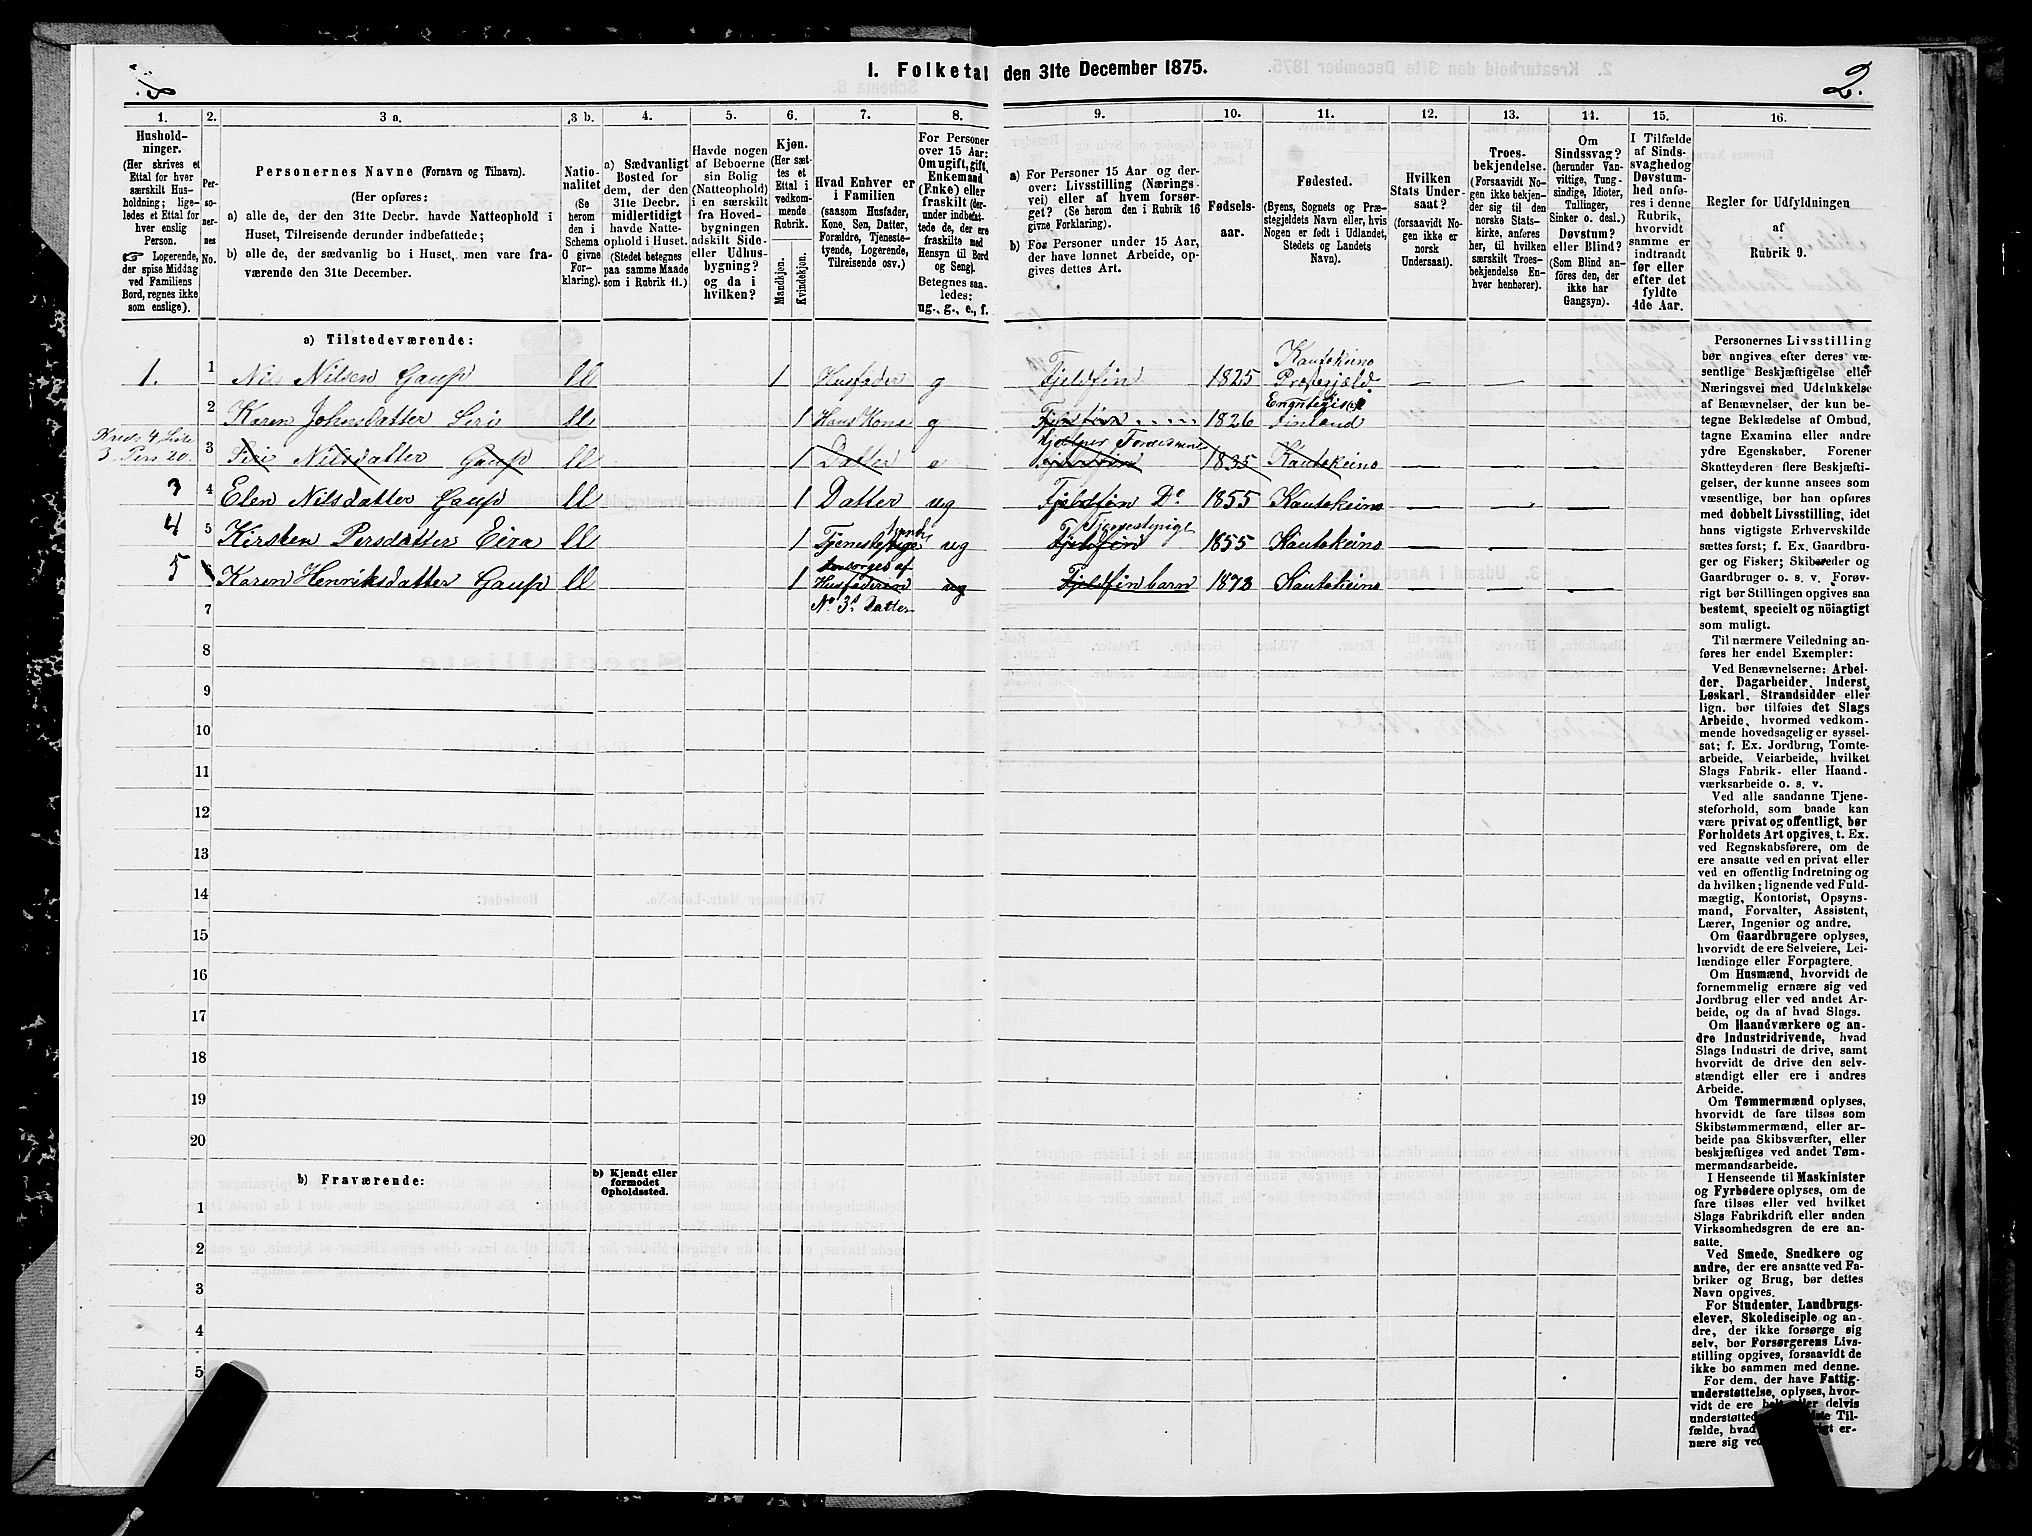 1. Folketal den 31te December 1875.
2.
1.
2.
3 a.
3 b.
4.
5.
6.
7.
8.
9.
10.
11.
12.
13.
14.
15.
16.
Hushold-
ninger.
(Her skrives et
Ettal for hver
særskilt Hus-
holdning; lige-
ledes et Ettal for
hver enslig
Person.
☞ Logerende,
der spise Middag
ved Familiens
Bord, regnes ikke
som enslige).
Per-
so-
ner-
nes
No.
Personernes Navne (Fornavn og Tilnavn).
(Her opføres:
a) alle de, der den 31te Decbr. havde Natteophold i
Huset, Tilreisende derunder indbefattede;
b) alle de, der sædvanlig bo i Huset, men vare fra-
værende den 31te December.
Natio-
nalitet
(Se
herom
den i
Schema
C givne
For-
klaring).
a) Sædvanligt
Bosted for
dem, der den
31te Decbr.
midlertidigt
havde Natte-
ophold i Huset.
(Stedet betegnes
paa samme Maade
som i Rubrik 11.)
Havde nogen
af Beboerne
sin Bolig
(Natteophold)
i en særskilt
fra Hoved-
bygningen
adskilt Side-
eller Udhus-
bygning?
og da i
hvilken?
Kjøn.
(Her sæt-
tes et
Ettal i
vedkom-
mende
Rubrik.
Mandkjøn.
Kvindekjøn.
Hvad Enhver er
i Familien
(saasom Husfader,
Kone, Søn, Datter,
Forældre, Tjeneste-
tyende, Logerende,
Tilreisende osv.)
For Personer
over 15 Aar:
Om ugift, gift,
Enkemand
(Enke) eller
fraskilt (der-
under indbefat-
tede de, der ere
fraskilte med
Hensyn til Bord
og Seng).
Betegnes saa-
ledes:
ug., g., e., f.
a) For Personer 15 Aar og der-
over: Livsstilling (Nærings-
vei) eller af hvem forsør-
get? (Se herom den i Rubrik 16
givne Forklaring).
b) For Personer under 15 Aar,
der have lønnet Arbeide, op-
gives dettes Art.
Fødsels-
aar.
Fødested.
(Byens, Sognets og Præ-
stegjeldets Navn eller, hvis
Nogen er født i Udlandet,
Stedets og Landets
Navn).
Hvilken
Stats Under-
saat?
(forsaavidt No-
gen ikke er
norsk
Undersaat).
Troes-
bekjendelse.
(Forsaavidt No-
gen ikke bekjen-
der sig til den
norske Stats-
kirke, anføres
her, til hvilken
særskilt Troes-
bekjendelse En-
hver henhører).
Om
Sindssvag?
(herunder Van-
vittige, Tung-
sindige, Idioter,
Tullinger,
Sinker o. desl.)
Døvstum?
eller Blind?
(Som Blind an-
føres den, der
ikke har
Gangsyn).
I Tilfælde
af Sinds-
svaghed og
Døvstum-
hed anfø-
res i denne
Rubrik,
hvorvidt
samme er
indtraadt
før eller
efter det
fyldte
4de Aar.
Regler for Udfyldningen
af
Rubrik 9.
a) Tilstedeværende:
1. 1 Nils Nilsen Gaup ll 1 Husfader g Fjeldfin 1825 Kautokeino Præstegjæld — — —
2 Karen Johnsdatter Siri ll 1 Hans Kone g Fjeldfin 1826 Finland — — —
Kreds 4 Liste
3. Pers 20. 3 Siri Nilsdatter Gaup ll 1 Datter Fjeldfin 1835 Kautokeino — — —
3 4 Elen Nilsdatter Gaup ll 1 Datter ug Fjeldfin Do 1855 Kautokeino — — —
4 5 Kirsten Persdatter Eira ll 1 Tjenestepige ug Fjeldfin Tjenestepige 1855 Kautokeino — — —
5 Karen Henriksdatter Gaup ll 1 forsørges af Husfaderen ug Fjeldfin barn 1873 Kautokeino — — —
7 No 3s Datter
8
9
10
11
12
13
14
15
16
17
18
19
20
b) Fraværende:
b) Kjendt eller
formodet
Opholdssted.
1
2
3
4
5
Personernes Livsstilling
bør angives efter deres væ-
sentlige Beskjæftigelse eller
Næringsvei med Udelukkelse
af Benævnelser, der kun be-
tegne Beklædelse af Ombud,
tagne Examina eller andre
ydre Egenskaber. Forener
Skatteyderen flere Beskjæfti-
gelser, der kunne ansees som
væsentlige, bør han opføres
med dobbelt Livsstilling, idet
hans vigtigste Erhvervskilde
sættes først; f. Ex. Gaardbru-
ger og Fisker; Skibsreder og
Gaardbruger o. s. v. Forøv-
rigt bør Stillingen opgives saa
bestemt, specielt og nöiagtig
som muligt.
Til nærmere Veiledning an-
føres her endel Exempler:
Ved Benævnelserne: Arbei-
der, Dagarbeider, Inderst,
Løskarl, Strandsidder eller
lign. bør tilføies det Slags
Arbeide, hvormed vedkom-
mende hovedsagelig er syssel-
sat; f. Ex. Jordbrug, Tomte-
arbeide, Veiarbeide, hvilket
Slags Fabrik- eller Haand-
værksarbeide o. s. v.
Ved alle saadanne Tjene-
steforhold, som baade kan
være privat og offentligt, bør
Forholdets Art opgives, t. Ex.
ved Regnskabsførere, om de
ere ansatte ved en privat eller
ved en offentlig Indretning og
da hvilken; lignende ved Fuld-
mægtig, Kontorist, Opsyns-
mand, Forvalter, Assistent,
Lærer, Ingeniør og andre.
Om Gaardbrugere oplyses,
hvorvidt de ere Selveiere, Lei-
lændinge eller Forpagtere.
Om Husmænd, hvorvidt de
fornemmelig ernære sig ved
Jordbrug eller ved andet Ar-
beide, og da af hvad Slags.
Om Haandværkere og an-
dre Industridrivende, hvad
Slags Industri de drive, samt
hvorvidt de drive den selv-
stændigt eller ere i andres
Arbeide.
Om Tømmermænd oplyses,
hvorvidt de fare tilsøs som
Skibstømmermænd, eller ar-
beide paa Skibsværfter, eller
beskjæftiges ved andet Tøm-
mermandsarbeide.
I Henseende til Maskinister
og Fyrbødere oplyses, om de
fare tilsøs eller ved hvilket
Slags Fabrikdrift eller anden
Virksomhedsgren de ere an-
satte.
Ved Smede, Snedkere og
andre, der ere ansatte ved Fa-
briker og Brug, bør dettes
Navn opgives.
For Studenter, Landbrugs-
elever, Skoledisciple og an-
dre, der ikke forsørge sig
selv, bør Forsørgerens Livs-
stilling opgives, forsaavidt de
ikke bo sammen med denne.
For dem, der have Fattig-
understøttelse, oplyses, hvor-
vidt de ere delvis
understøttede Til-
fælde, hvad er-
nære sig ved